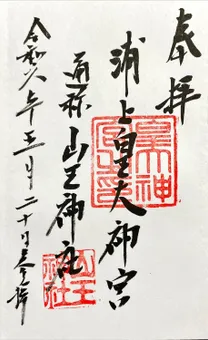 奉拝
浦上皇大神宮
通称 山王神社
令和六年五月二十日参拝
山王神社